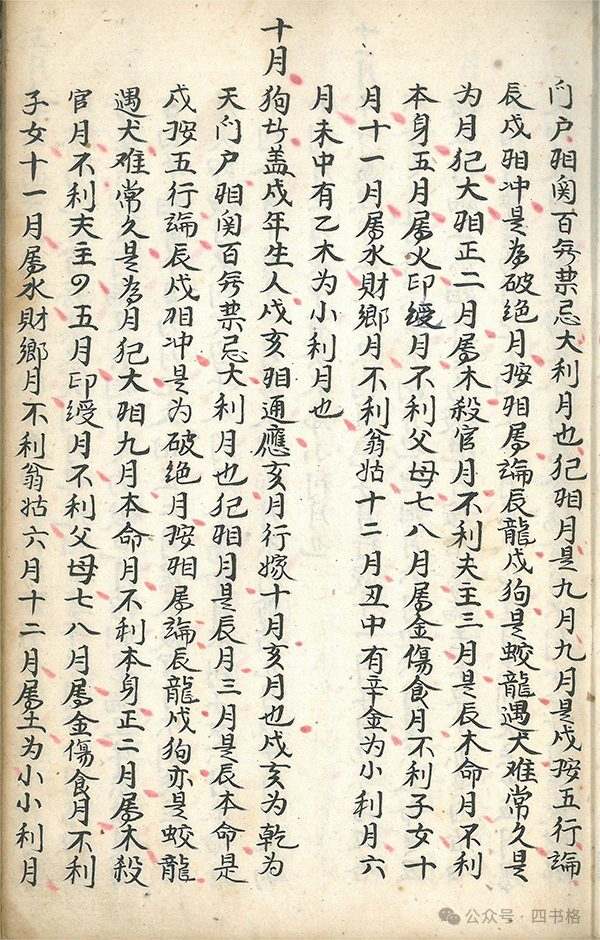 门户相関百无禁忌大利月也犯相月是九月九月是戍按五行論
辰戍相冲是為破绝月按相属論辰龍戍狗是蛟龍遇犬难常久是
为月犯大相正二月属木殺官月不利夫主三月是辰本命月不利
本身五月属火印绶月不利父母七八月属金傷食月不利子女十
月十一月属水財鄉月不利翁姑十二月丑中有辛金为小利月六
月未中有乙木为小利月也
十月狗女盖戍年生人戍亥相通應亥月行嫁十月亥月也戍亥为乾为
天门户相関百无禁忌大利月也犯相月是辰月三月是辰本命是
戍按五行論辰戍相冲是为破绝月按相属論辰龍戍狗亦是蛟龍
遇犬难常久是為月犯大相九月本命月不利本身正二月属木殺
官月不利夫主四五月印绶月不利父母七八月属金傷食月不利
子女十一月属水財鄉月不利翁姑六月十二月属土为小小利月
公众号·四书格